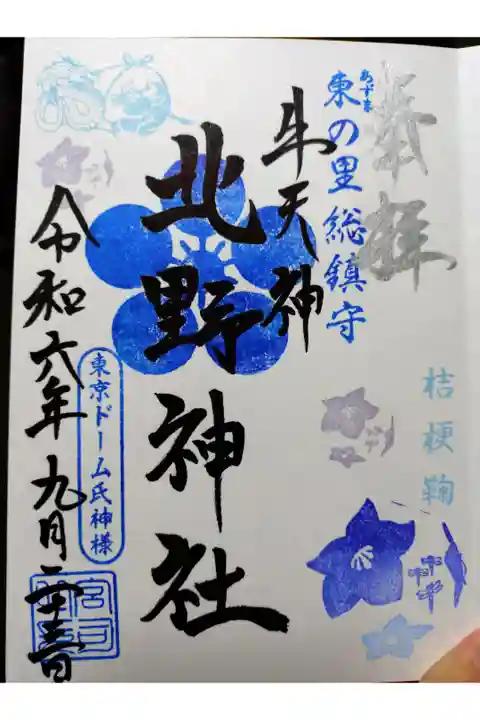 奉拝
桔梗鞠
あずま
東の里総鎮守
牛天神
北野神社
東京ドーム氏神様
令和六年九月二十三日